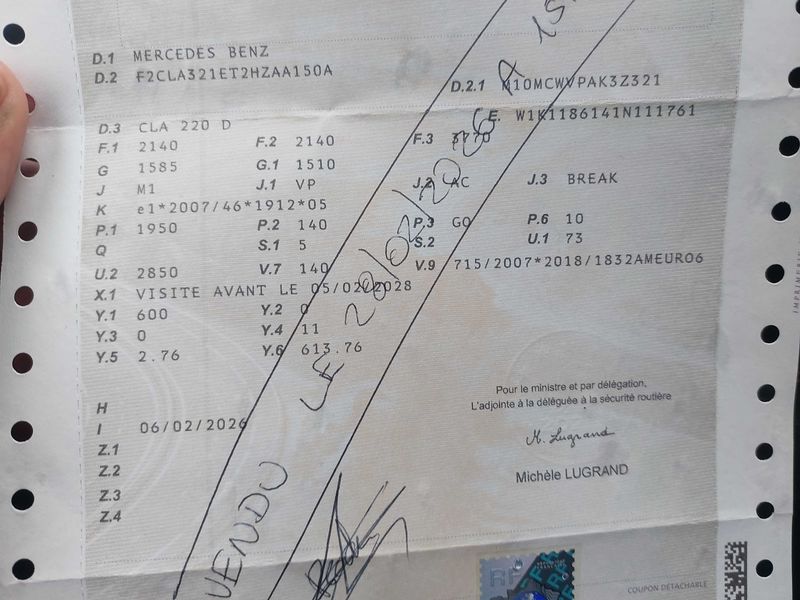 D.1 MERCEDES BENZ
D.2 F2CLA321ET2HZAA150A
D.2.1 M10MCWVPAK3Z321
D.3 CLA 220 D
E. W1K1186141N111761
F.1 2140 F.2 2140 F.3 3770
G 1585 G.1 1510
J M1 J.1 VP J.2 AC J.3 BREAK
K e1*2007/46*1912*05
P.1 1950 P.2 140 P.3 GO P.6 10
Q S.1 5 S.2 U.1 73
U.2 2850 V.7 140 V.9 715/2007*2018/1832AMEURO6
X.1 VISITE AVANT LE 05/02/2028
Y.1 600 Y.2 0
Y.3 0 Y.4 11
Y.5 2.76 Y.6 613.76
H
I 06/02/2026
Z.1
Z.2
Z.3
Z.4
VENDU LE 28/02/2026 A
Pour le ministre et par délégation,
L'adjointe à la déléguée à la sécurité routière
M. Lugrand
Michèle LUGRAND
RF
COUPON DÉTACHABLE